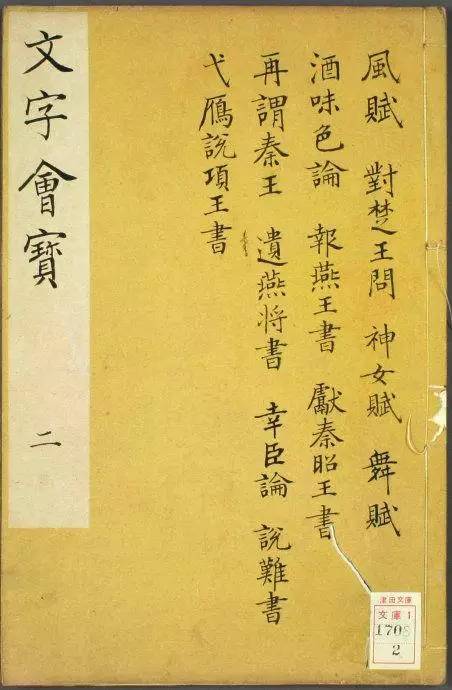 風賦 對楚王問 神女賦 舞賦
酒味色論 報燕王書 獻秦昭王書
再謂秦王 遺燕将書 幸臣論 說難書
弋鴈說項王書
文字會寳 二
津田文庫
文庫 1
1705
2